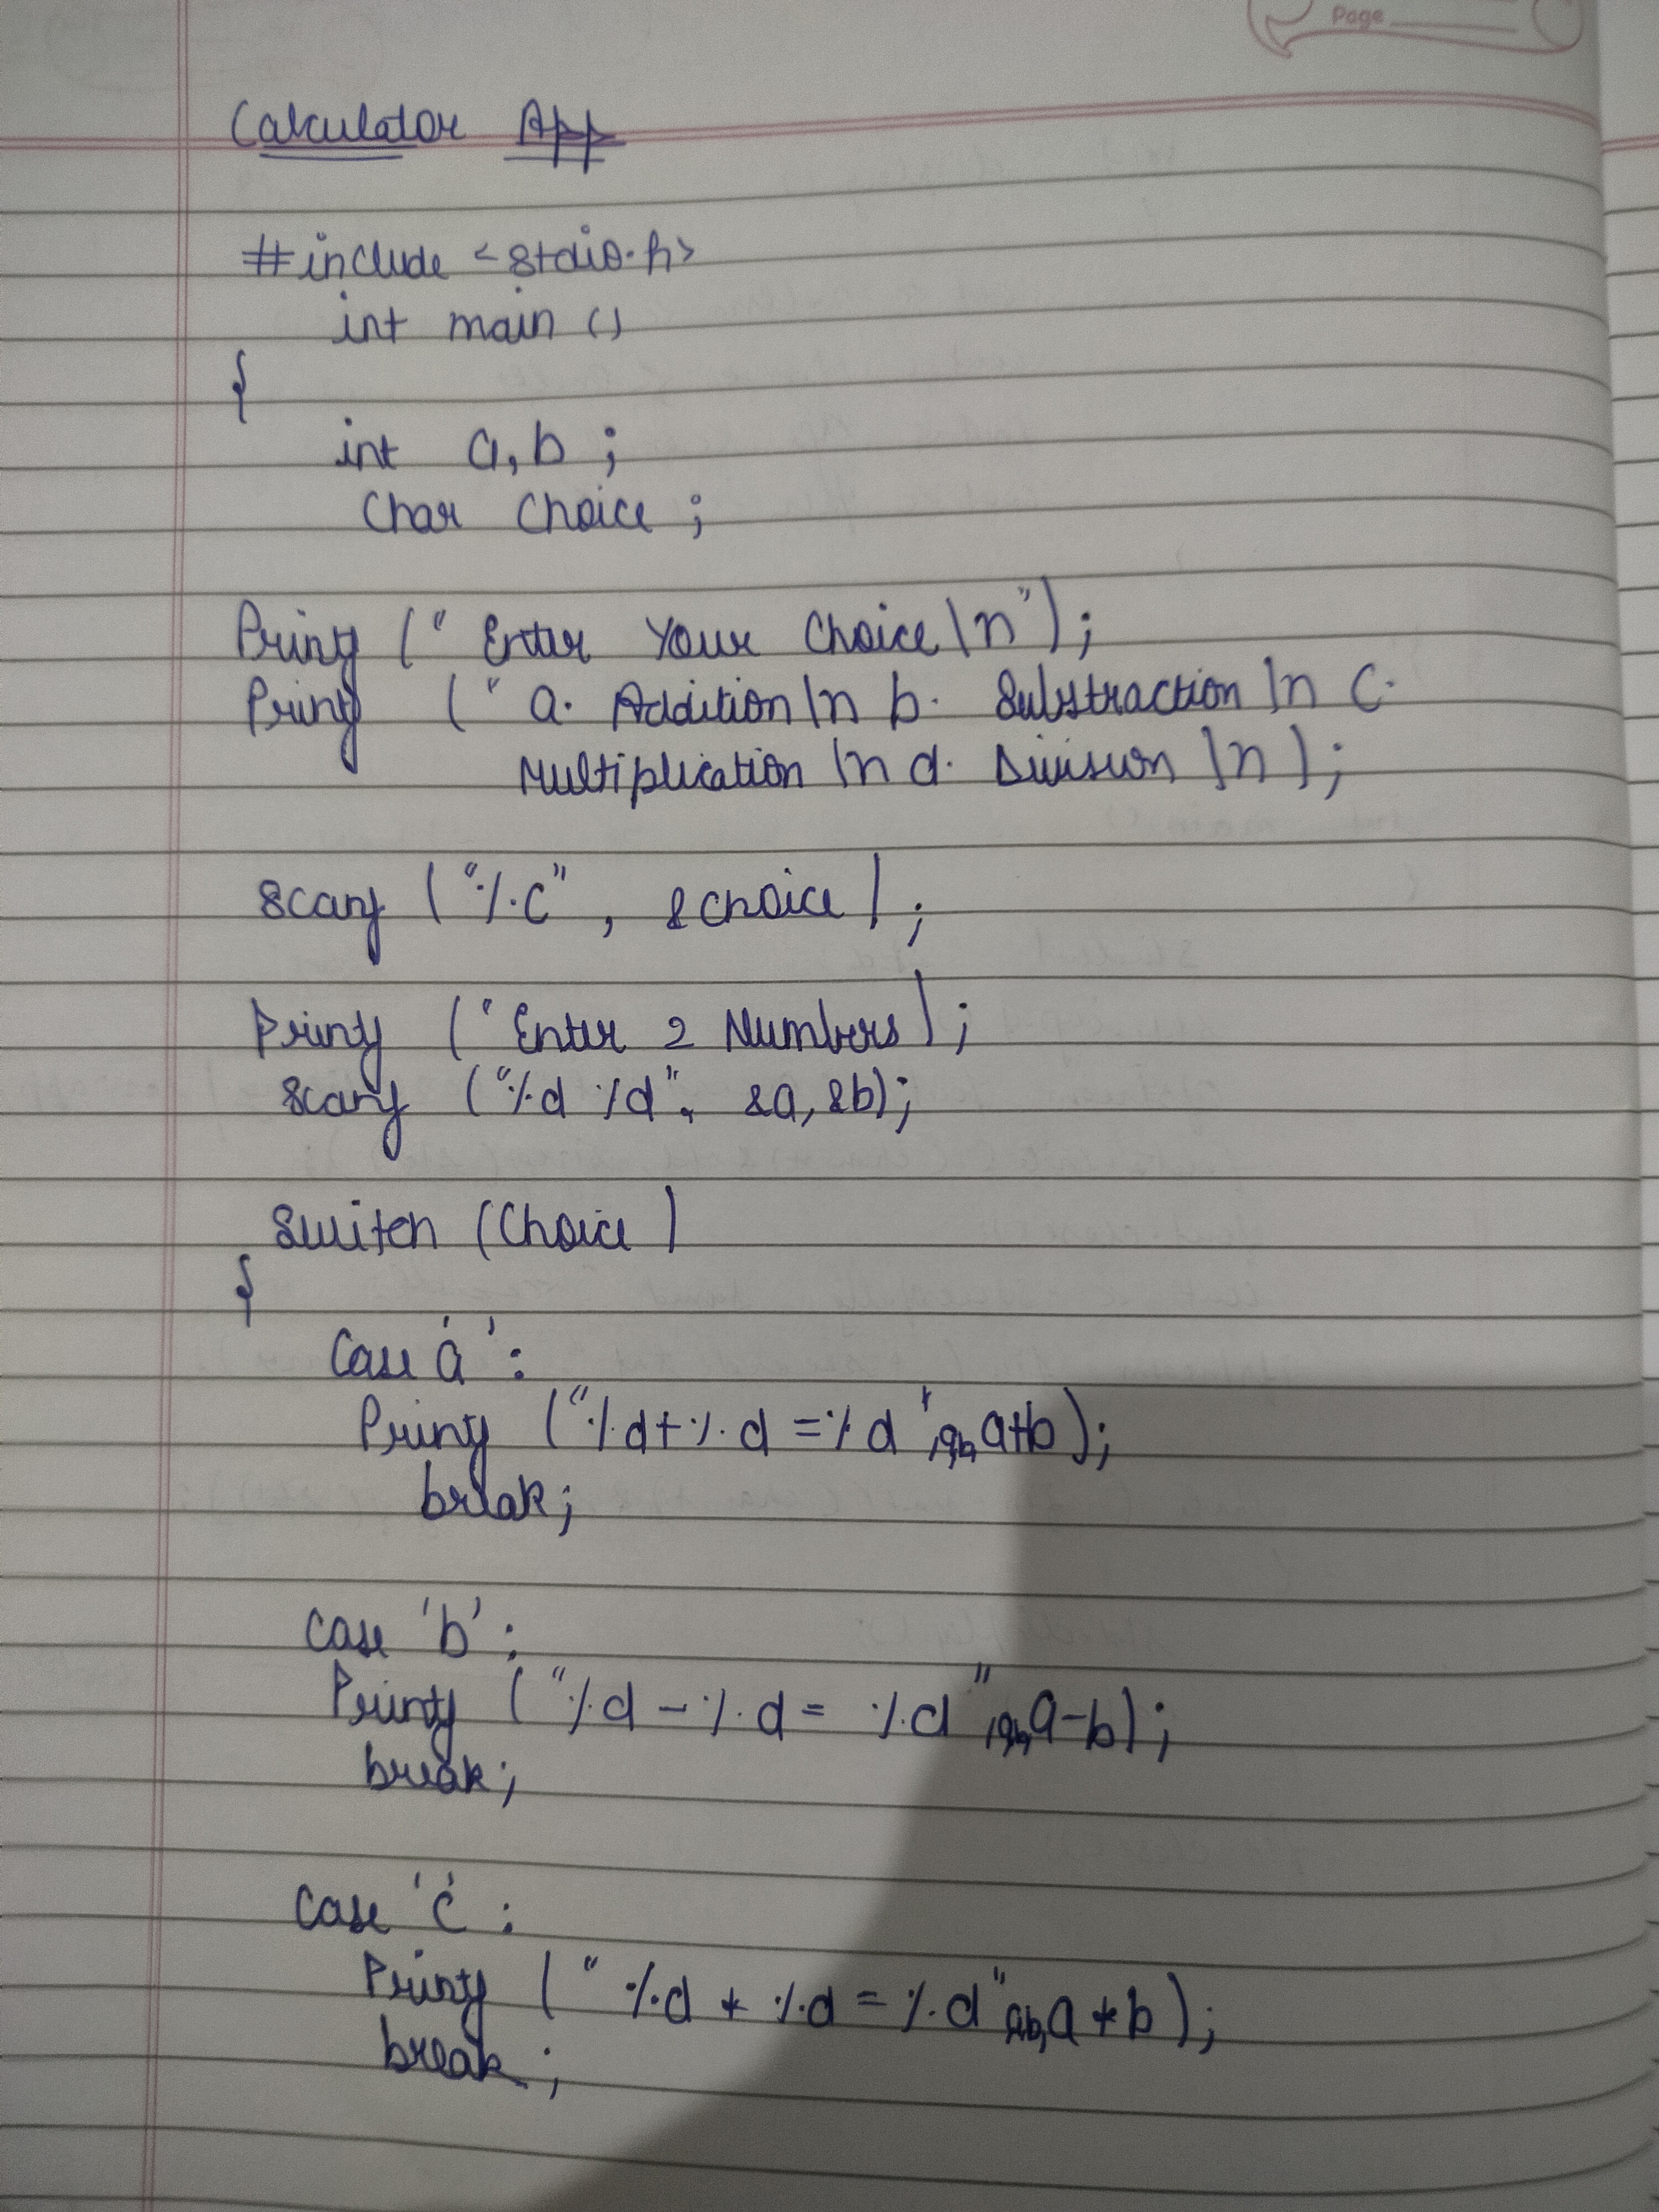 Page
Calculator App
#include <stdio.h>
int main ()
{
int a,b ;
Char Choice ;
Printf (" Enter Your Choice \n");
Printf (" a. Addition \n b. Substraction \n c.
Multiplication \n d. Division \n );
Scanf ("%c" , &choice) ;
Printf (" Enter 2 Numbers) ;
Scanf ("%d %d", &a, &b);
Switch (Choice )
{
Case 'a' :
Printf ("%d+%d =%d",a,b,a+b);
break;
Case 'b' :
Printf ("%d - %d = %d",a,b,a-b);
break;
Case 'c' :
Printf (" %d * %d = %d"a,b,a*b);
break ;